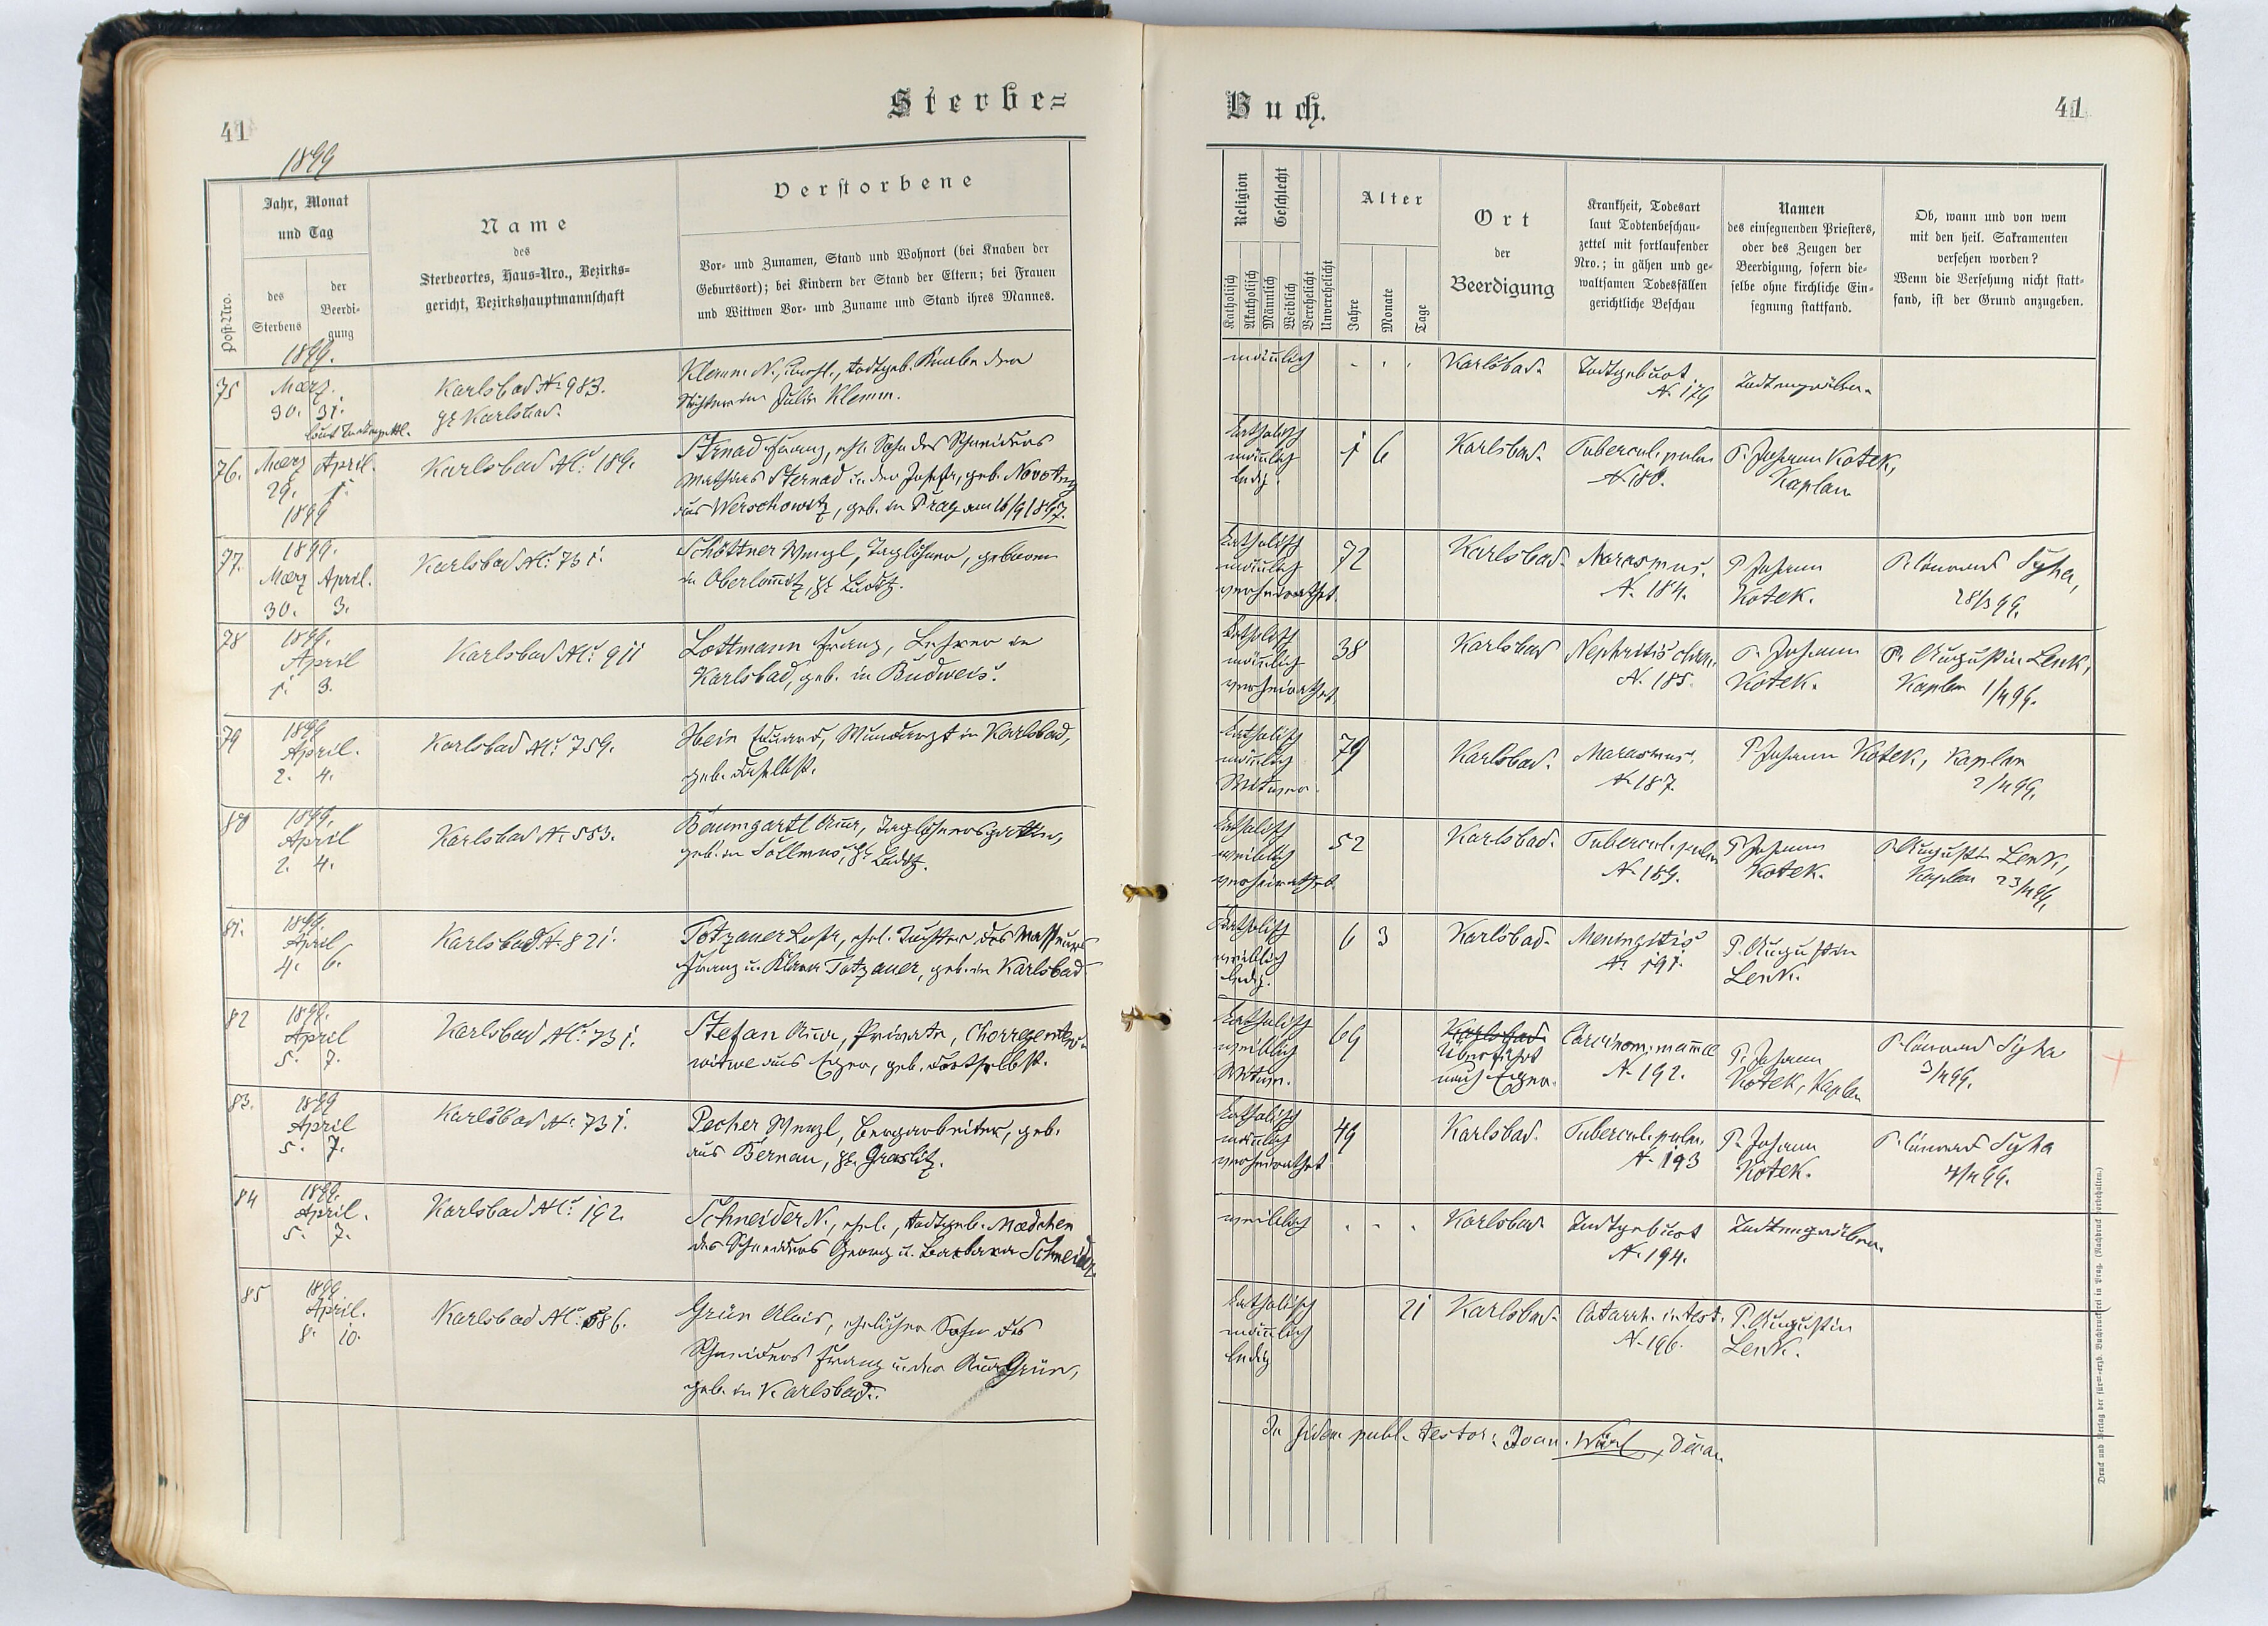 Sterbe=
41
1899
Post-Nro.
Jahr, Monat
und Tag
des
Sterbens
der
Beerdi-
gung
1899.
Name
des
Sterbeortes, Haus-Nro., Bezirks=
gericht, Bezirkshauptmannschaft
Verstorbene
Vor- und Zunamen, Stand und Wohnort (bei Knaben der
Geburtsort); bei Kindern der Stand der Eltern; bei Frauen
und Wittwen Vor- und Zuname und Stand ihres Mannes.
75
März.
30. 31.
Karlsbad N. 983.
Karlsbad.
Klemm N., todtgeb. Knabe der
Julie Klemm.
76.
März April.
29. 1.
1899
Karlsbad Nr. 189.
Strnad Franz, ehl. Sohn des Schneiders
Mathias Sternad u. der Josefa, geb. Novotny
aus Werschowitz, geb. in Prag am 16/9 1897.
77.
1899.
März April.
30. 3.
Karlsbad Nr. 731.
Schöttner Wenzl, Taglöhner, geboren
in Oberlomitz, Bz. Luditz.
78
1899.
April
1. 3.
Karlsbad Nr. 911
Lottmann Franz, Lehrer in
Karlsbad, geb. in Budweis.
79
1899
April.
2. 4.
Karlsbad Nr. 759.
Hein Eduard, Wundarzt in Karlsbad,
geb. daselbst.
80
1899.
April
2. 4.
Karlsbad N. 583.
Baumgartl Anna, Taglöhnersgattin,
geb. in Sollmus, Bz. Luditz.
81.
1899.
April
4. 6.
Karlsbad N. 821.
Totzauer ehel. Tochter des Masseurs
Franz u. Klara Totzauer, geb. in Karlsbad
82
1899.
April
5. 7.
Karlsbad Nr. 731.
Stefan Anna, Private, Chorregenten-
witwe aus Eger, geb. dortselbst.
83.
1899
April
5. 7.
Karlsbad N. 731.
Pecher Wenzl, Bergarbeiter, geb.
aus Bernau, Bz. Graslitz.
84
1899.
April.
5. 7.
Karlsbad Nr. 192.
Schneider N., ehel., todtgeb. Mædchen
des Schneiders Georg u. Barbara Schneider.
85
1899
April.
8. 10.
Karlsbad Nr. 586.
Grün Alois, ehelicher Sohn des
Schneiders Franz u. der Anna Grün,
geb. in Karlsbad.
Buch.
41
Religion
Katholisch
Akatholisch
Geschlecht
Männlich
Weiblich
Verehelicht
Unverehelicht
Alter
Jahre
Monate
Tage
Ort
der
Beerdigung
Krankheit, Todesart
laut Todtenbeschau-
zettel mit fortlaufender
Nro.; in gähen und ge-
waltsamen Todesfällen
gerichtliche Beschau
Namen
des einsegnenden Priesters,
oder des Zeugen der
Beerdigung, sofern die-
selbe ohne kirchliche Ein-
segnung stattfand.
Ob, wann und von wem
mit den heil. Sakramenten
versehen worden?
Wenn die Versehung nicht statt-
fand, ist der Grund anzugeben.
männlich
Karlsbad.
Todtgeburt.
N. 179
Todtengräber.
katholisch
männlich
ledig.
1 6
Karlsbad.
Tubercul. pulm
N. 180.
P. Johann Kotek,
Kaplan
katholisch
männlich
verheirathet.
72
Karlsbad.
Marasmus.
N. 184.
P. Johann
Kotek.
P. Syha,
28/3 99.
katholisch
männlich
verheirathet
38
Karlsbad
Nephritis chron.
N. 185.
P. Johann
Kotek.
P. Augustin Lenk,
Kaplan 1/4 99.
katholisch
männlich
Witwer.
79
Karlsbad.
Marasmus.
N. 187.
P. Johann Kotek, Kaplan
2/4 99.
katholisch
weiblich
verheirathet
52
Karlsbad.
Tubercul. pulm
N. 189.
P. Johann
Kotek.
P. Augustin Lenk,
Kaplan
katholisch
weiblich
ledig.
6 3
Karlsbad.
Meningitis
N. 191.
P. Augustin
Lenk.
katholisch
weiblich
Witwe.
69
Karlsbad.
Überführt
nach Eger.
Carcinom. mammæ
N. 192.
P. Johann
Kotek, Kaplan
P. Syha
3/4 99.
katholisch
männlich
verheirathet
49
Karlsbad.
Tubercul. pulm.
N. 193
P. Johann
Kotek.
P. Syha
4/4 99.
weiblich
Karlsbad
Todtgeburt
N. 194.
Todtengräber.
katholisch
männlich
ledig
21
Karlsbad.
Catarrh. intest.
N. 196.
P. Augustin
Lenk.
In fidem publ. testor: Joan. Dean
Druck und Verlag der fürst-erzb. Buchdruckerei in Prag. (Nachdruck vorbehalten.)